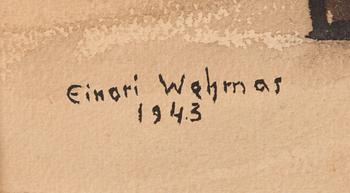 Einari Wehmas
1943